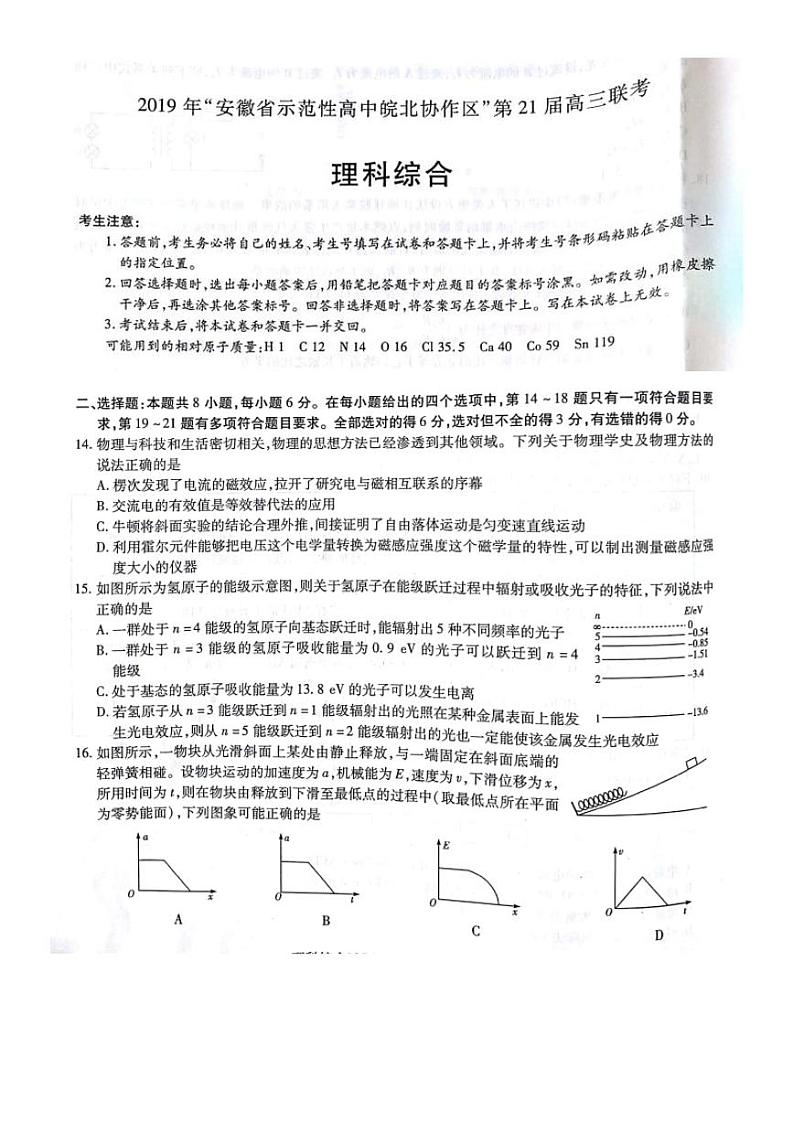 2019 年“安徽省示范性高中皖北协作区”第 21 届高三联考
理科综合
考生注意:
1. 答题前,考生务必将自己的姓名、考生号填写在试卷和答题卡上,并将考生号条形码粘贴在答题卡上
的指定位置。
2. 回答选择题时,选出每小题答案后,用铅笔把答题卡对应题目的答案标号涂黑。如需改动,用橡皮擦
干净后,再选涂其他答案标号。回答非选择题时,将答案写在答题卡上。写在本试卷上无效。
3. 考试结束后,将本试卷和答题卡一并交回。
可能用到的相对原子质量:H 1 C 12 N 14 O 16 Cl 35.5 Ca 40 Co 59 Sn 119
二、选择题:本题共 8 小题,每小题 6 分。在每小题给出的四个选项中,第 14 ~ 18 题只有一项符合题目要
求,第 19 ~ 21 题有多项符合题目要求。全部选对的得 6 分,选对但不全的得 3 分,有选错的得 0 分。
14. 物理与科技和生活密切相关,物理的思想方法已经渗透到其他领域。下列关于物理学史及物理方法的
说法正确的是
A. 楞次发现了电流的磁效应,拉开了研究电与磁相互联系的序幕
B. 交流电的有效值是等效替代法的应用
C. 牛顿将斜面实验的结论合理外推,间接证明了自由落体运动是匀变速直线运动
D. 利用霍尔元件能够把电压这个电学量转换为磁感应强度这个磁学量的特性,可以制出测量磁感应强
度大小的仪器
15. 如图所示为氢原子的能级示意图,则关于氢原子在能级跃迁过程中辐射或吸收光子的特征,下列说法中
正确的是
A. 一群处于 n = 4 能级的氢原子向基态跃迁时,能辐射出 5 种不同频率的光子
B. 一群处于 n = 3 能级的氢原子吸收能量为 0. 9 eV 的光子可以跃迁到 n = 4
能级
C. 处于基态的氢原子吸收能量为 13. 8 eV 的光子可以发生电离
D. 若氢原子从 n = 3 能级跃迁到 n = 1 能级辐射出的光照在某种金属表面上能发
生光电效应,则从 n = 5 能级跃迁到 n = 2 能级辐射出的光也一定能使该金属发生光电效应
n E/eV
∞ 0
5 -0.54
4 -0.85
3 -1.51
2 -3.4
1 -13.6
16. 如图所示,一物块从光滑斜面上某处由静止释放,与一端固定在斜面底端的
轻弹簧相碰。设物块运动的加速度为 a,机械能为 E,速度为 v,下滑位移为 x,
所用时间为 t,则在物块由释放到下滑至最低点的过程中(取最低点所在平面
为零势能面),下列图象可能正确的是
a
O x
A
a
O t
B
E
O x
C
v
O t
D